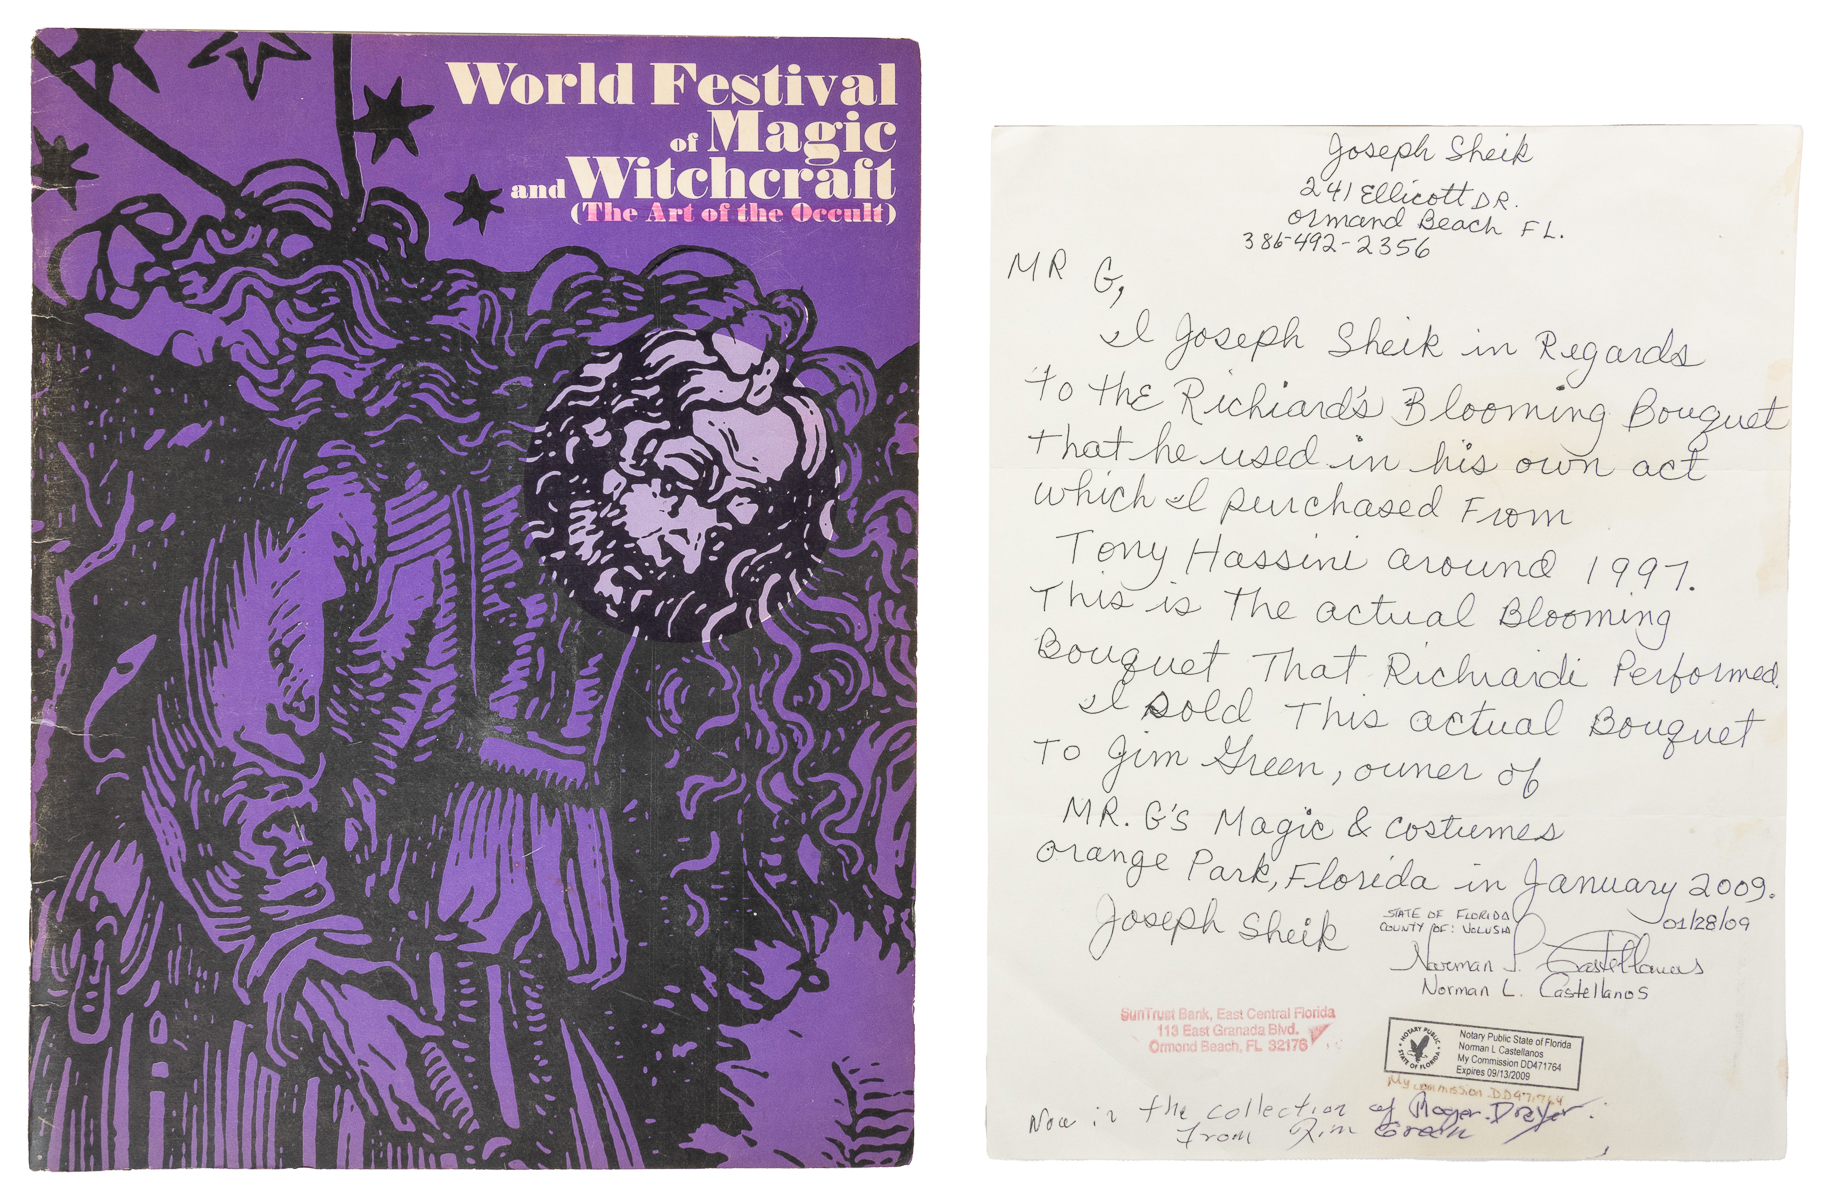 World Festival
of Magic
and Witchcraft
(The Art of the Occult)
Joseph Sheik
241 Ellicott DR.
Ormand Beach FL.
386-492-2356
MR G,
I Joseph Sheik in Regards
to the Richiard's Blooming Bouquet
that he used in his own act
which I purchased From
Tony Hassini around 1997.
This is The actual Blooming
Bouquet That Richiardi Performed.
I sold This actual Bouquet
To Jim Green, owner of
MR. G's Magic & costumes
Orange Park, Florida in January 2009.
Joseph Sheik
STATE OF FLORIDA
COUNTY OF: VOLUSIA
01/28/09
Norman L. Castellanos
Norman L. Castellanos
SunTrust Bank, East Central Florida
113 East Granada Blvd.
Ormond Beach, FL 32176
NOTARY PUBLIC
STATE OF FLORIDA
Notary Public State of Florida
Norman L Castellanos
My Commission DD471764
Expires 09/13/2009
My commission DD471764
Now in the collection of Roger Dreyer.
From Jim Green